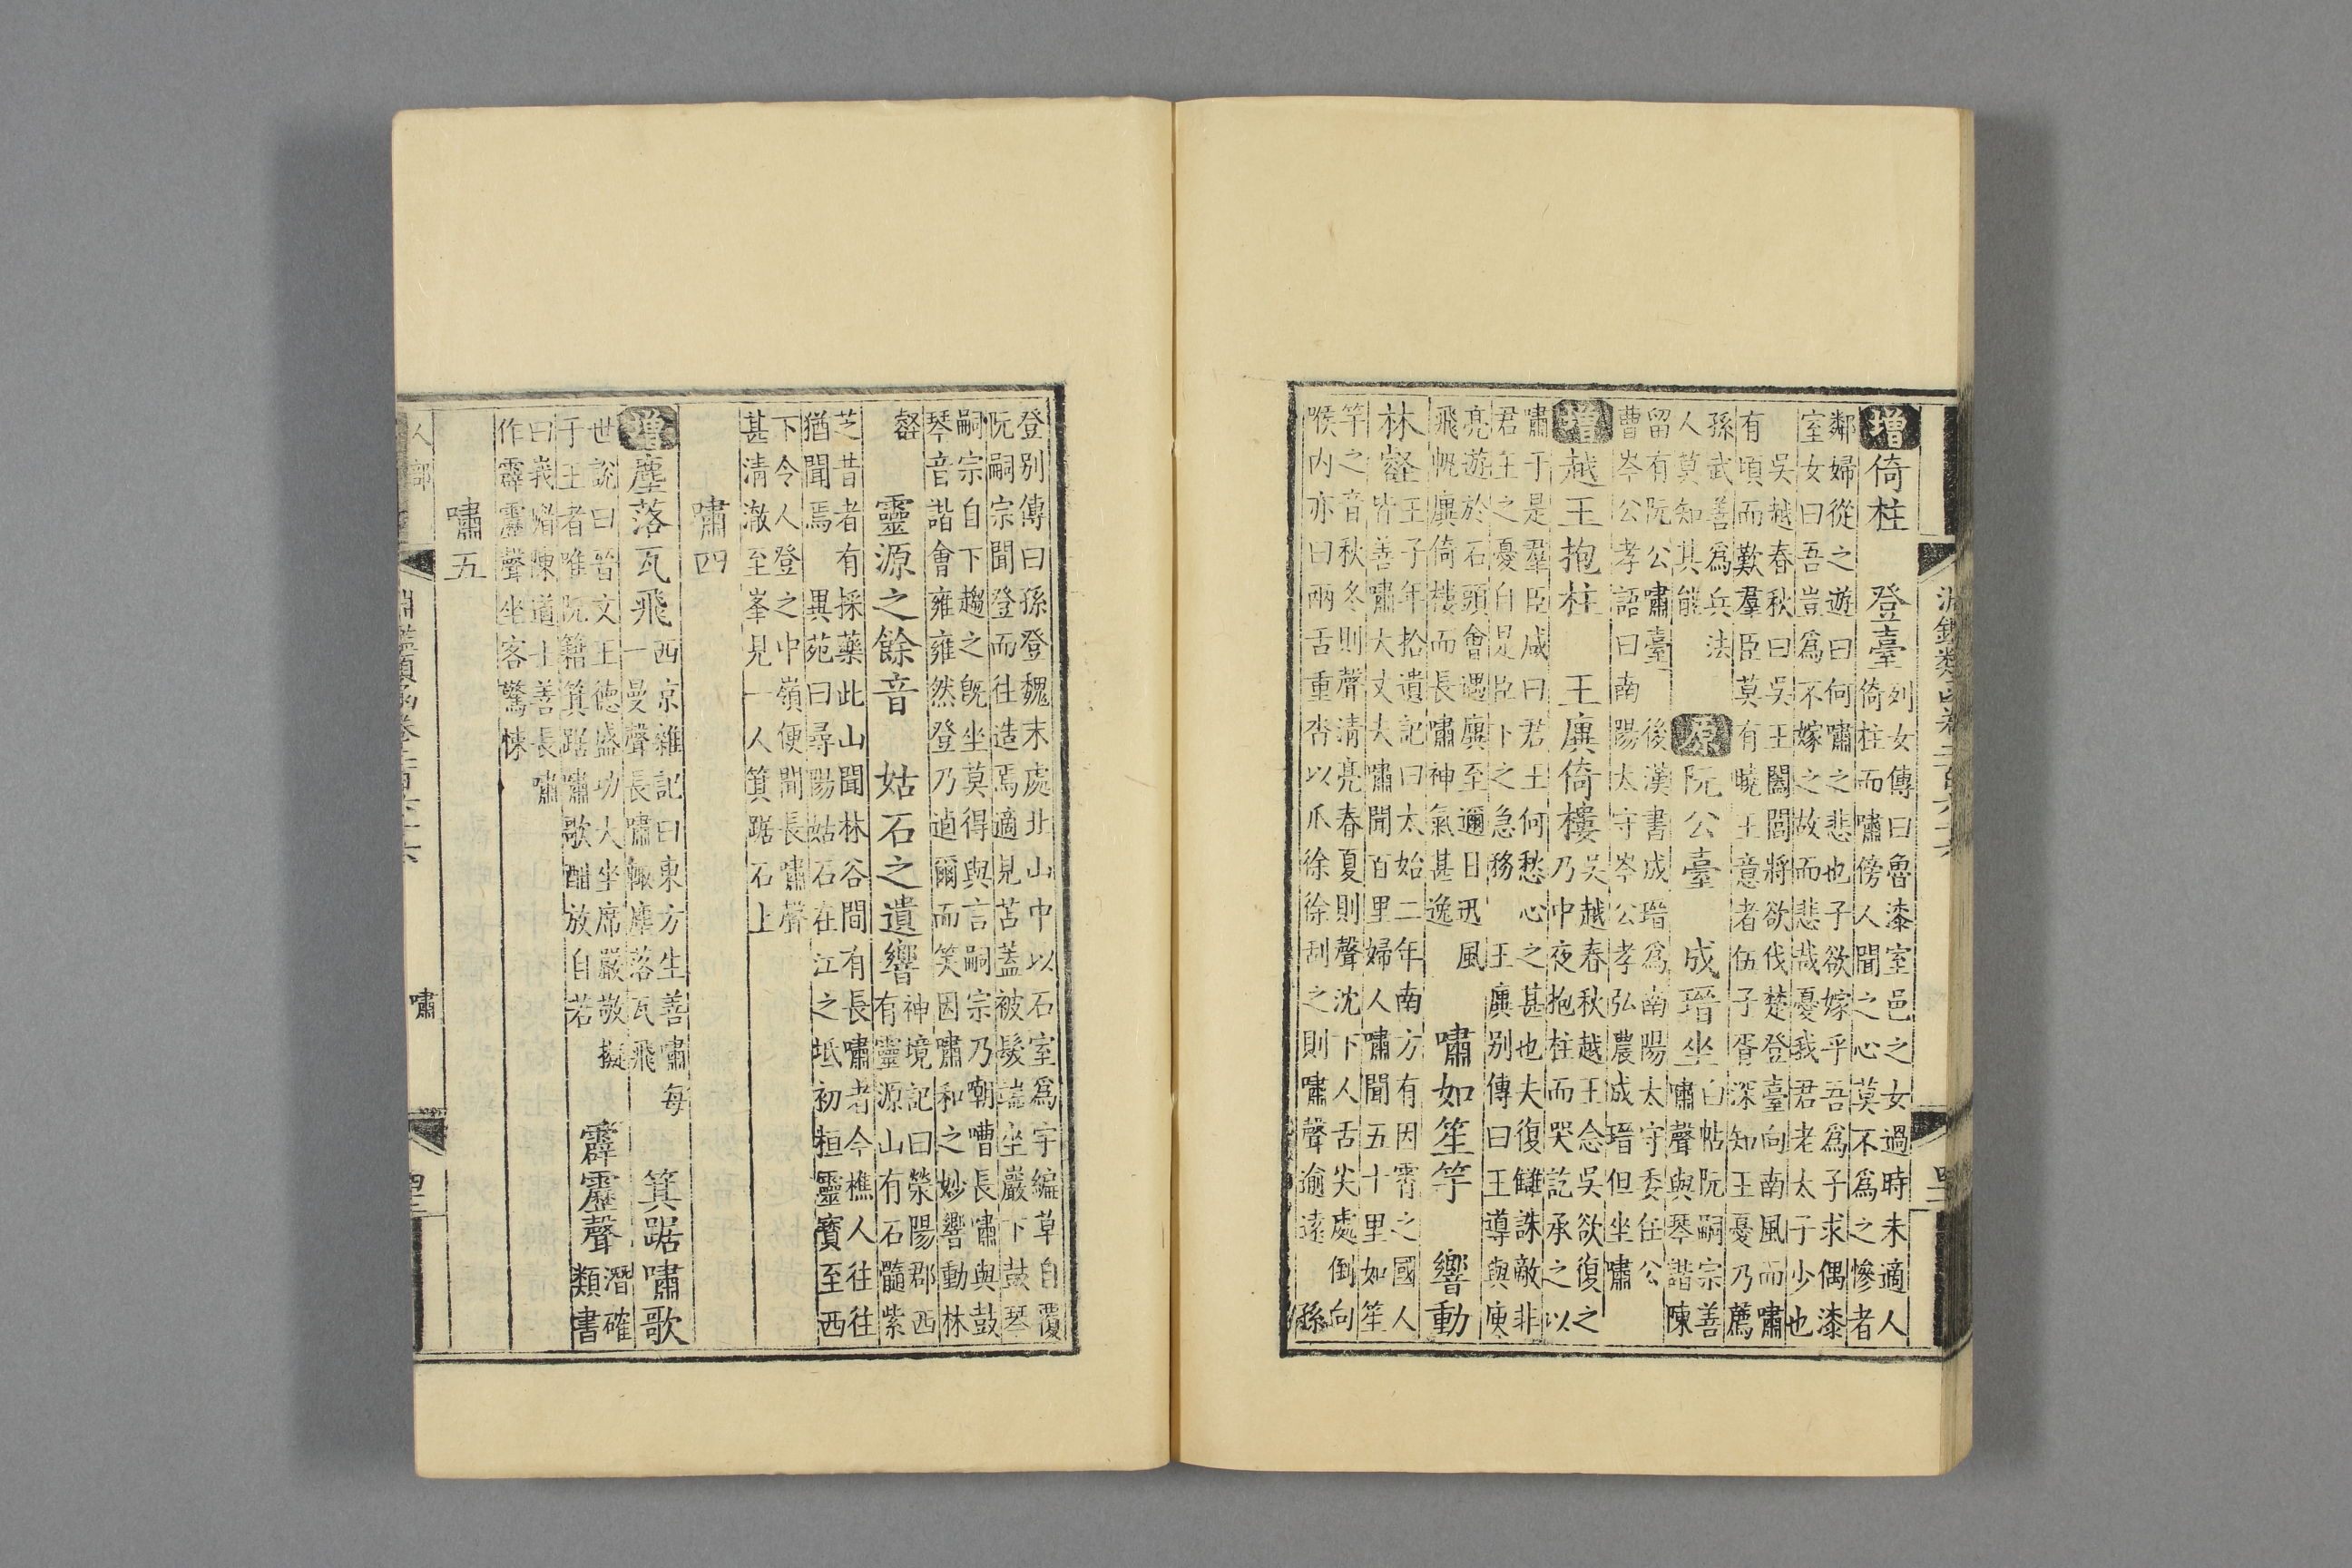 淵鑑類函卷二百六十六
增 倚柱 登臺 列女傳曰魯漆室邑之女過時未適人
倚柱而嘯傍人聞之心莫不爲之慘者
鄰婦從之遊曰何嘯之悲也子欲嫁乎吾爲子求偶漆
室女曰吾豈爲不嫁之故而悲哉憂我君老太子少也
吳越春秋曰吳王闔閭將欲伐楚登臺向南風而嘯
有頃而歎羣臣莫有曉王意者伍子胥深知王憂乃薦
孫武善爲兵法
人莫知其能
原 阮公臺 成瑨坐 白帖阮嗣宗善
嘯聲與琴諧陳
留有阮公嘯臺 後漢書成瑨爲南陽太守委任公
曹岑公孝語曰南陽太守岑公孝弘農成瑨但坐嘯
增 越王抱柱 王廙倚樓 吳越春秋越王念吳欲復之
乃中夜抱柱而哭訖承之以
嘯于是羣臣咸曰君王何愁心之甚也夫復讎誅敵非
君王之憂自是臣下之急務 王廙別傳曰王導與庾
亮遊於石頭會遇廙至邇日迅風
飛帆廙倚樓而長嘯神氣甚逸
嘯如笙竽 響動
林壑 王子年拾遺記曰太始二年南方有因霄之國人
皆善嘯大丈夫嘯聞百里婦人嘯聞五十里如笙
竽之音秋冬則聲清亮春夏則聲沈下人舌尖處倒向
喉内亦曰兩舌重沓以爪徐徐刮之則嘯聲逾遠 孫
登別傳曰孫登魏末處北山中以石室爲宇編草自覆
阮嗣宗聞登而往造焉適見苫蓋被髮端坐巖下鼓琴
嗣宗自下趨之旣坐莫得與言嗣宗乃嘲嘈長嘯與鼓
琴音諧會雍雍然登乃逌爾而笑因嘯和之妙響動林
壑
靈源之餘音 姑石之遺響 神境記曰滎陽郡西
有靈源山有石髓紫
芝昔者有採藥此山聞林谷間有長嘯者今樵人往往
猶聞焉 異苑曰尋陽姑石在江之坻初桓靈寶至西
下令人登之中嶺便聞長嘯聲
甚清澈至峯見一人箕踞石上
嘯四
增 塵落瓦飛 西京雜記曰東方生善嘯每
一曼聲長嘯輒塵落瓦飛
箕踞嘯歌
世說曰晉文王德盛功大坐席嚴敬擬
于王者唯阮籍箕踞嘯歌酣放自若
霹靂聲 潛確
類書
曰峩嵋陳道士善長嘯
作霹靂聲坐客驚悚
嘯五
人部
淵鑑類函卷二百六十六
嘯